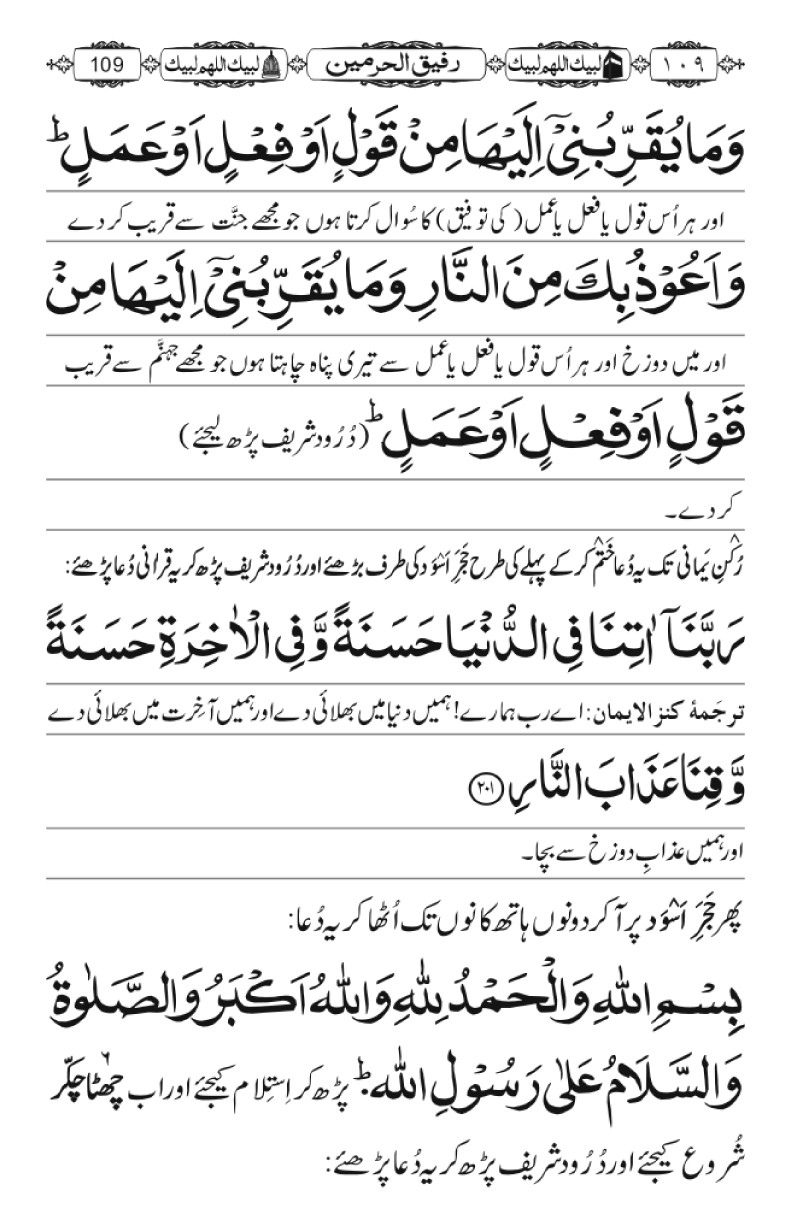 ۱۰۹ لبيك اللهم لبيك رفیق الحرمین لبيك اللهم لبيك 109
وَمَا یُقَرِّبُنِیْۤ اِلَیْهَا مِنْ قَوْلٍ اَوْ فِعْلٍ اَوْ عَمَلٍ ؕ
اور ہر اُس قول یا فعل یا عمل (کی توفیق) کا سُوال کرتا ہوں جو مجھے جنَّت سے قریب کر دے
وَاَعُوْذُ بِكَ مِنَ النَّارِ وَمَا یُقَرِّبُنِیْۤ اِلَیْهَا مِنْ
اور میں دوزخ اور ہر اُس قول یا فعل یا عمل سے تیری پناہ چاہتا ہوں جو مجھے جہنَّم سے قریب
قَوْلٍ اَوْ فِعْلٍ اَوْ عَمَلٍ ؕ (دُرُود شریف پڑھ لیجئے)
کر دے۔
رُکْنِ یَمانی تک یہ دُعا خَتْم کر کے پہلے کی طرح حَجَرِ اَسْوَد کی طرف بڑھئے اور دُرُود شریف پڑھ کر یہ قرانی دُعا پڑھئے:
رَبَّنَاۤ اٰتِنَا فِی الدُّنْیَا حَسَنَةً وَّ فِی الْاٰخِرَةِ حَسَنَةً
ترجَمهٔ کنز الایمان: اے رب ہمارے! ہمیں دنیا میں بھلائی دے اور ہمیں آخِرت میں بھلائی دے
وَّ قِنَا عَذَابَ النَّارِ ﴿۲۰۱﴾
اور ہمیں عذابِ دوزخ سے بچا۔
پھر حَجَرِ اَسْوَد پر آ کر دونوں ہاتھ کانوں تک اُٹھا کر یہ دُعا:
بِسْمِ اللّٰهِ وَالْحَمْدُ لِلّٰهِ وَاللّٰهُ اَكْبَرُ وَالصَّلٰوةُ
وَالسَّلَامُ عَلٰی رَسُوْلِ اللّٰه ؕ پڑھ کر اِستِلام کیجئے اور اب چھٹا چکّر
شُروع کیجئے اور دُرُود شریف پڑھ کر یہ دُعا پڑھئے: